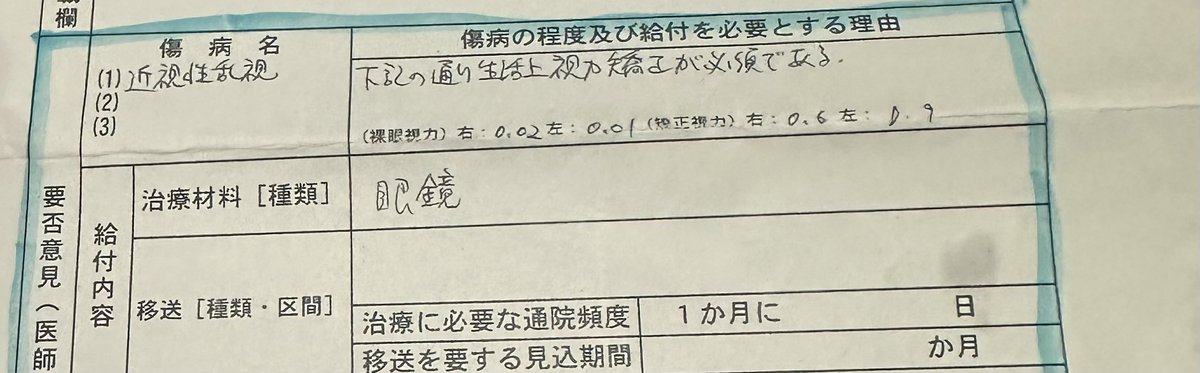 欄
傷病名
傷病の程度及び給付を必要とする理由
(1)近視性乱視
(2)
(3)
下記の通り生活上視力矯正が必須である.
(裸眼視力)右:0.02左:0.01(矯正視力)右:0.6左:0.9
要否意見(医師
給付内容
治療材料[種類]
眼鏡
移送[種類・区間]
治療に必要な通院頻度
1か月に 日
移送を要する見込期間
か月